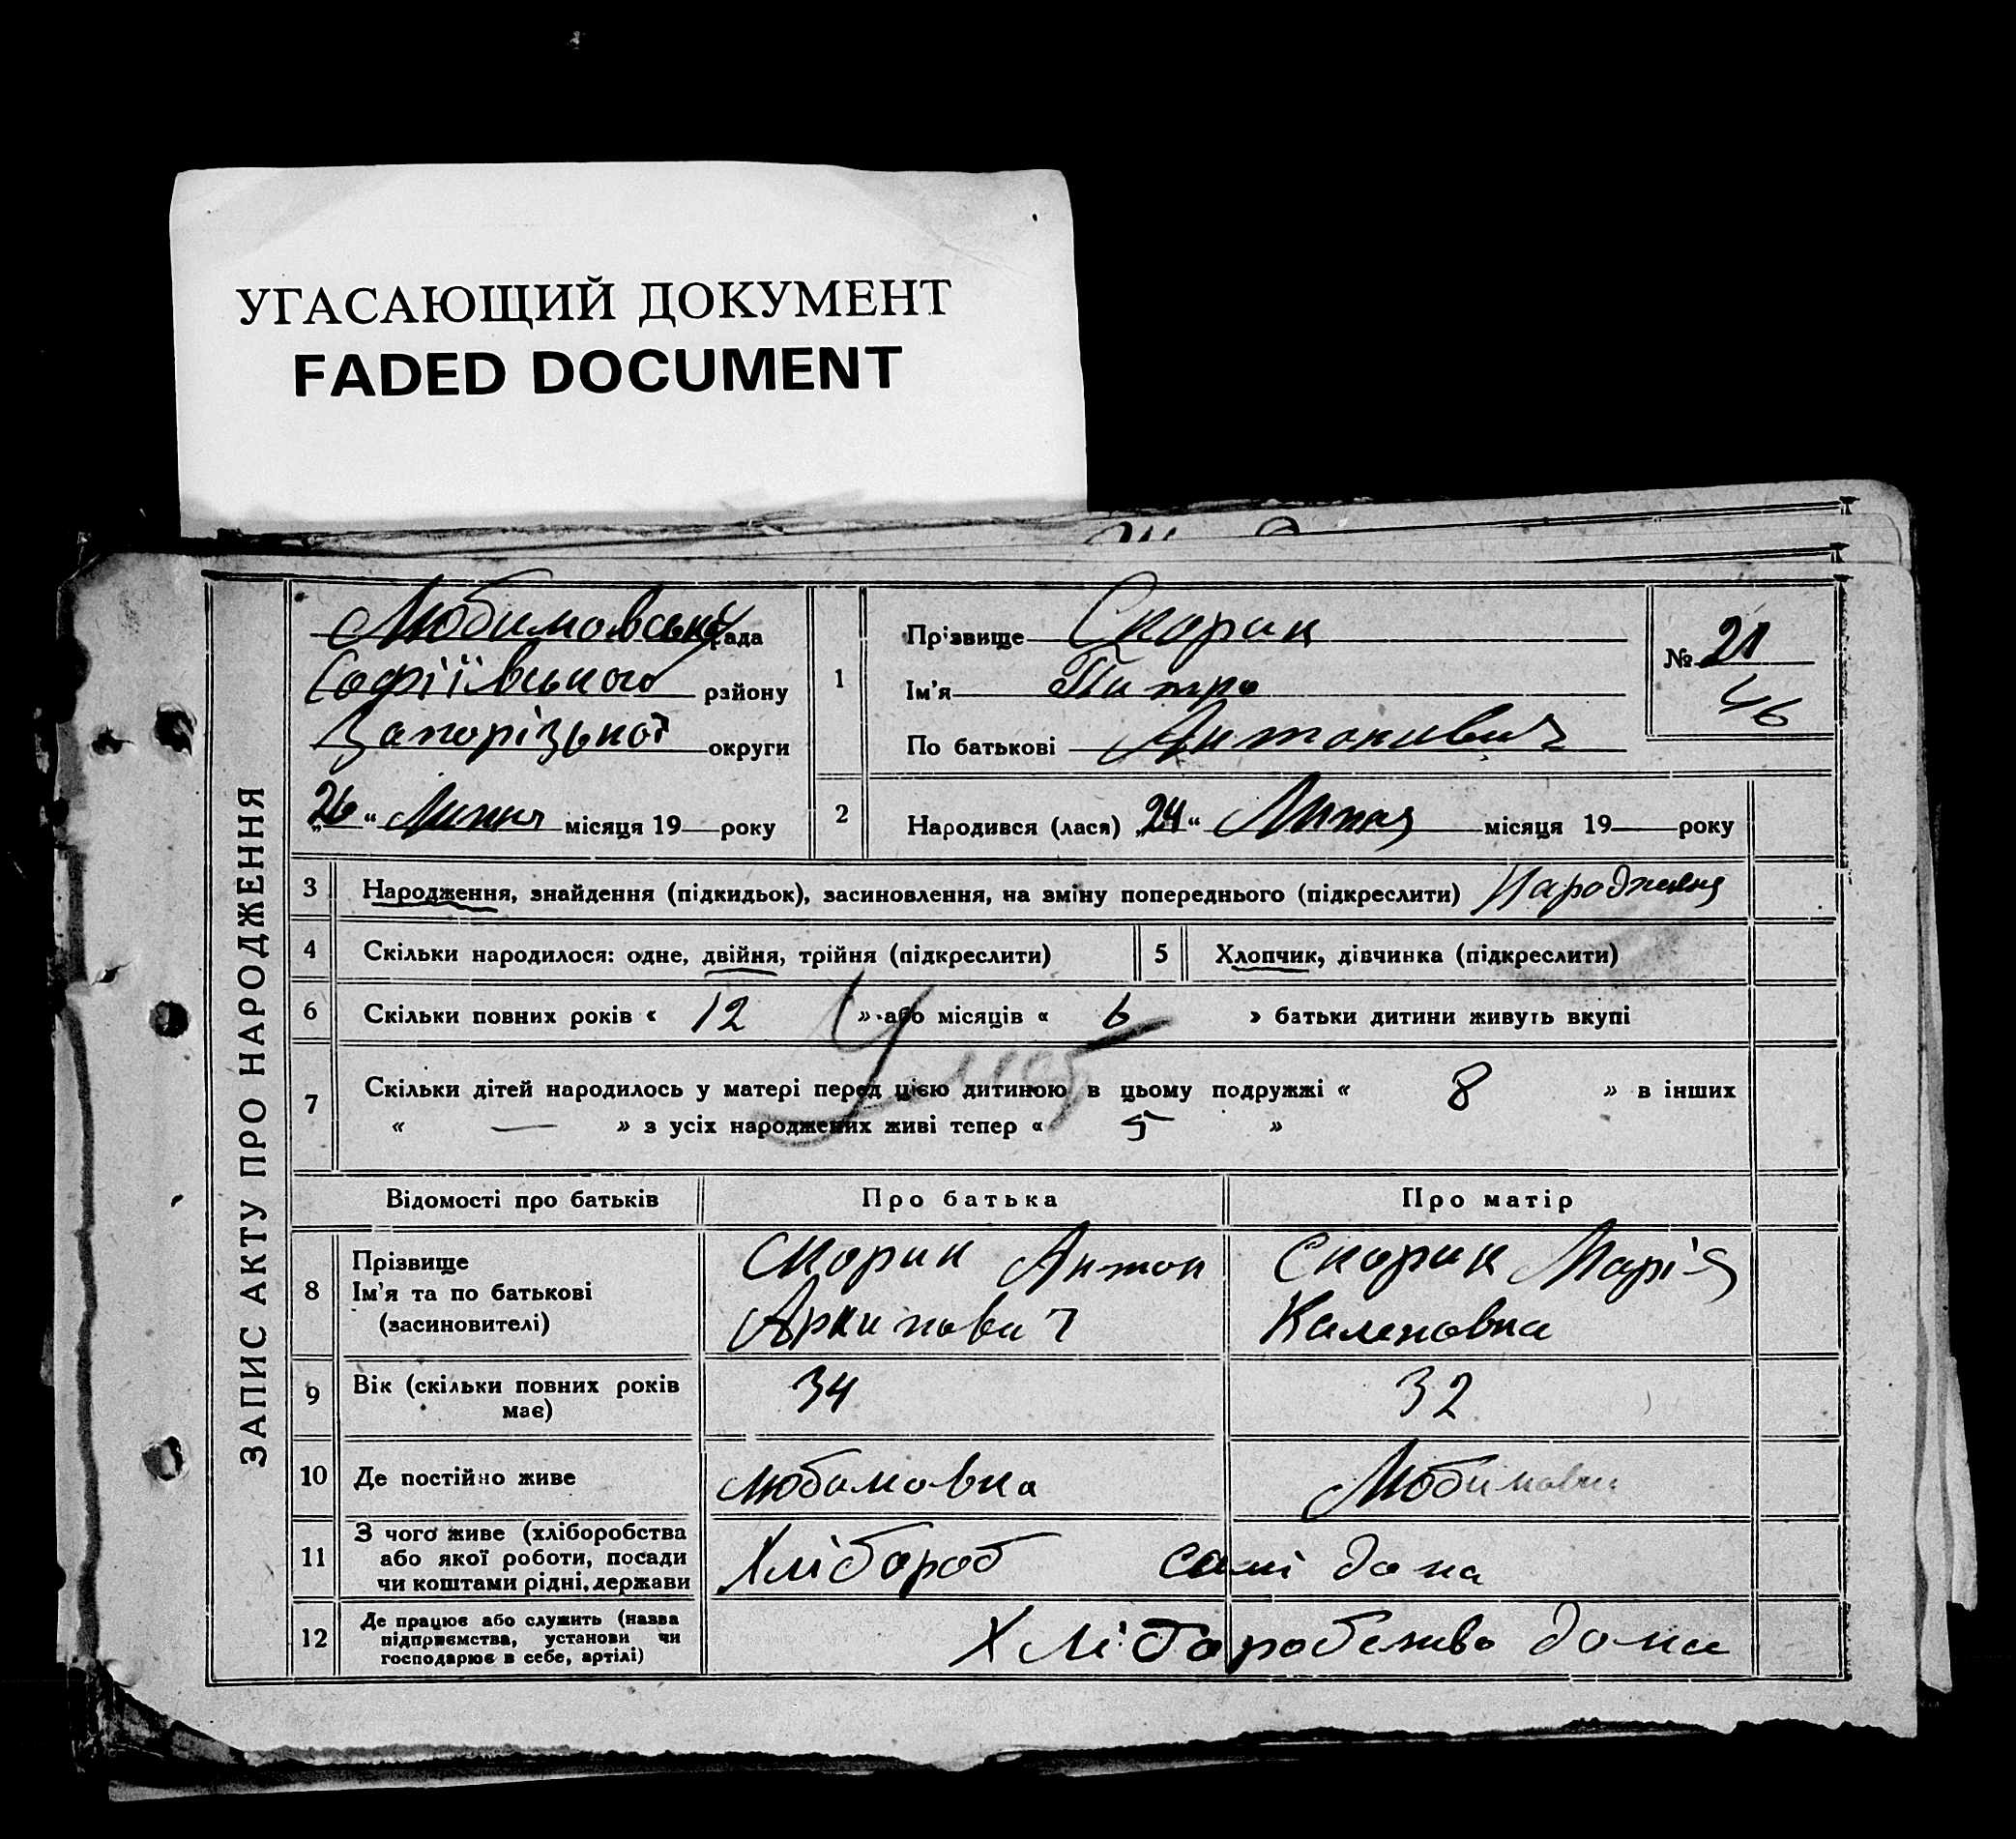 УГАСАЮЩИЙ ДОКУМЕНТ
FADED DOCUMENT
ЗАПИС АКТУ ПРО НАРОДЖЕННЯ
Любимовська рада
Софіївського району
Запорізької округи
26 " Липня місяця 19 року
1
Прізвище Скорик
Ім'я Питро
По батькові Антонивич
№ 21
46
2 Народився (лася) 24 " Липня місяця 19 року
3 Народження, знайдення (підкидьок), засиновлення, на зміну попереднього (підкреслити) Народження
4 Скільки народилося: одне, двійня, трійня (підкреслити) 5 Хлопчик, дівчинка (підкреслити)
6 Скільки повних років « 12 » або місяців « 6 » батьки дитини живуть вкупі
7 Скільки дітей народилось у матері перед цією дитиною в цьому подружжі « 8 » в інших
« — » з усіх народжених живі тепер « 5 »
Відомості про батьків Про батька Про матір
8 Прізвище
Ім'я та по батькові
(засиновителі)
Скорик Антон
Архипович
Скорик Марія
Калеповна
9 Вік (скільки повних років
має)
34 32
10 Де постійно живе Любимовка Любимовка
11 З чого живе (хліборобства
або якої роботи, посади
чи коштами рідні, держави
Хлібороб самі дома
12 Де працює або служить (назва
підприємства, установи чи
господарює в себе, артілі)
Хліборобство дома